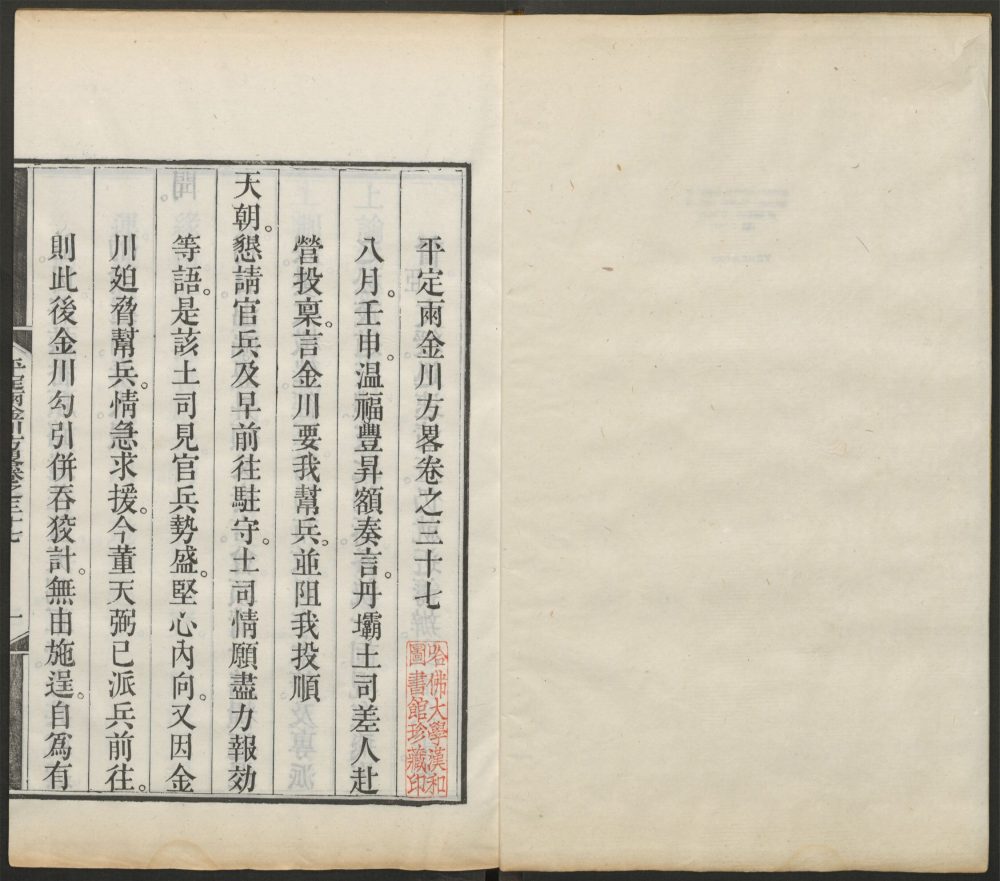 平定兩金川方畧卷之三十七
哈佛大學漢和
圖書館珍藏印
八月。壬申。温福豐昇額奏言。丹壩土司差人赴
營投稟。言金川要我幫兵。並阻我投順
天朝。懇請官兵及早前往駐守。土司情願盡力報効
等語。是該土司見官兵勢盛。堅心內向。又因金
川廹脅幫兵。情急求援。今董天弼已派兵前往。
則此後金川勾引併吞狡計。無由施逞。自爲有
平定兩金川方畧卷之三十七 一